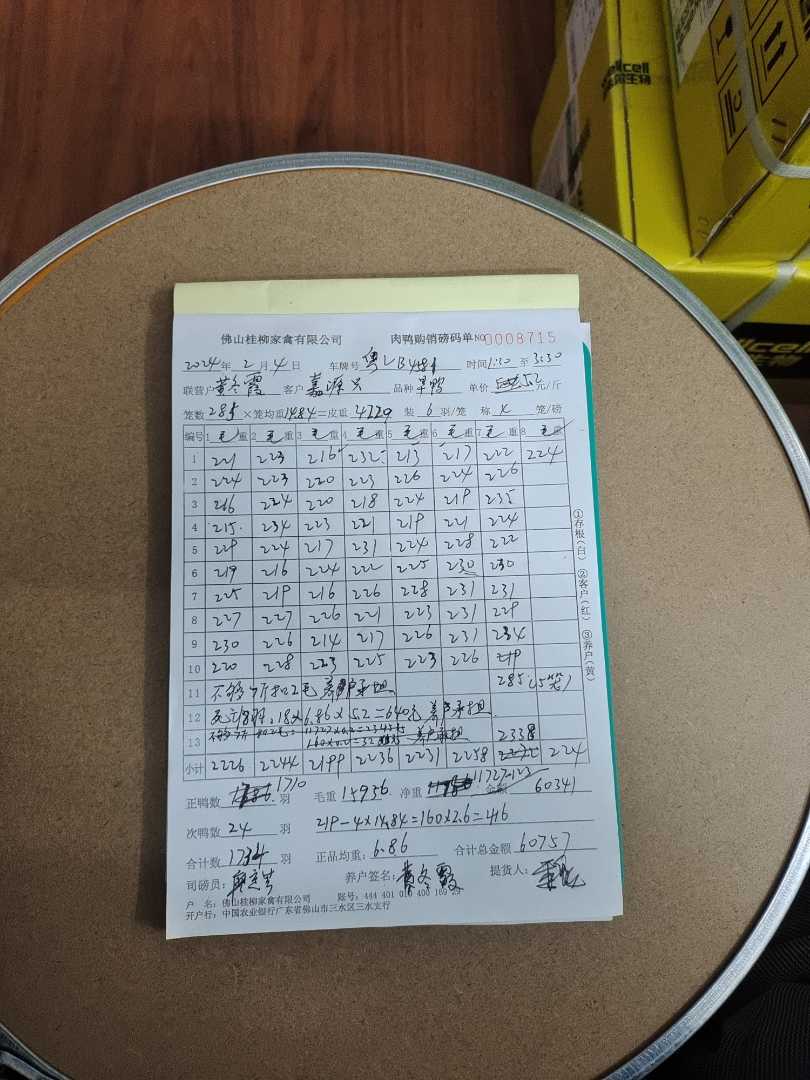 cellcell
生物
佛山桂柳家禽有限公司 肉鸭购销磅码单 NO 0008715
2024年 2月 4日 车牌号 粤 时间1:30 至 3:30
联营户 黄冬霞 客户 嘉源 品种 单价 5.2 元/斤
笼数 285 ×笼均重 14.84 =皮重 4229 装 6 羽/笼 称 笼/磅
编号 1 毛重 2 毛重 3 毛重 4 毛重 5 毛重 6 毛重 7 毛重 8 毛重
1 221 223 216 232 213 217 222 224
2 224 223 220 223 226 224 226
3 216 224 220 218 224 219 235
4 215 234 223 221 219 221 224
5 229 224 217 231 224 228 222
6 219 216 224 222 225 230 230
7 225 219 216 226 228 231 231
8 227 227 226 221 223 231 229
9 230 226 214 217 226 231 234
10 220 228 223 225 223 226
11 不够7斤扣2毛 养户承担 285
12 死亡18羽,18×6.86×5.2=640元 养户承担
13 160×0.2=32 养户承担 2338
小计 2226 2244 2199 2236 2231 2258 224
正鸭数 1710 羽 毛重 15956 净重 11727-123 金额 60341
次鸭数 24 羽 219-4×14.84=160×2.6=416
合计数 1734 羽 正品均重: 6.86 合计总金额 60757
司磅员: 养户签名: 黄冬霞 提货人:
户 名: 佛山桂柳家禽有限公司 账号: 444 401 010 400 169 29
开户行: 中国农业银行广东省佛山市三水区三水支行
①存根(白) ②客户(红) ③养户(黄)